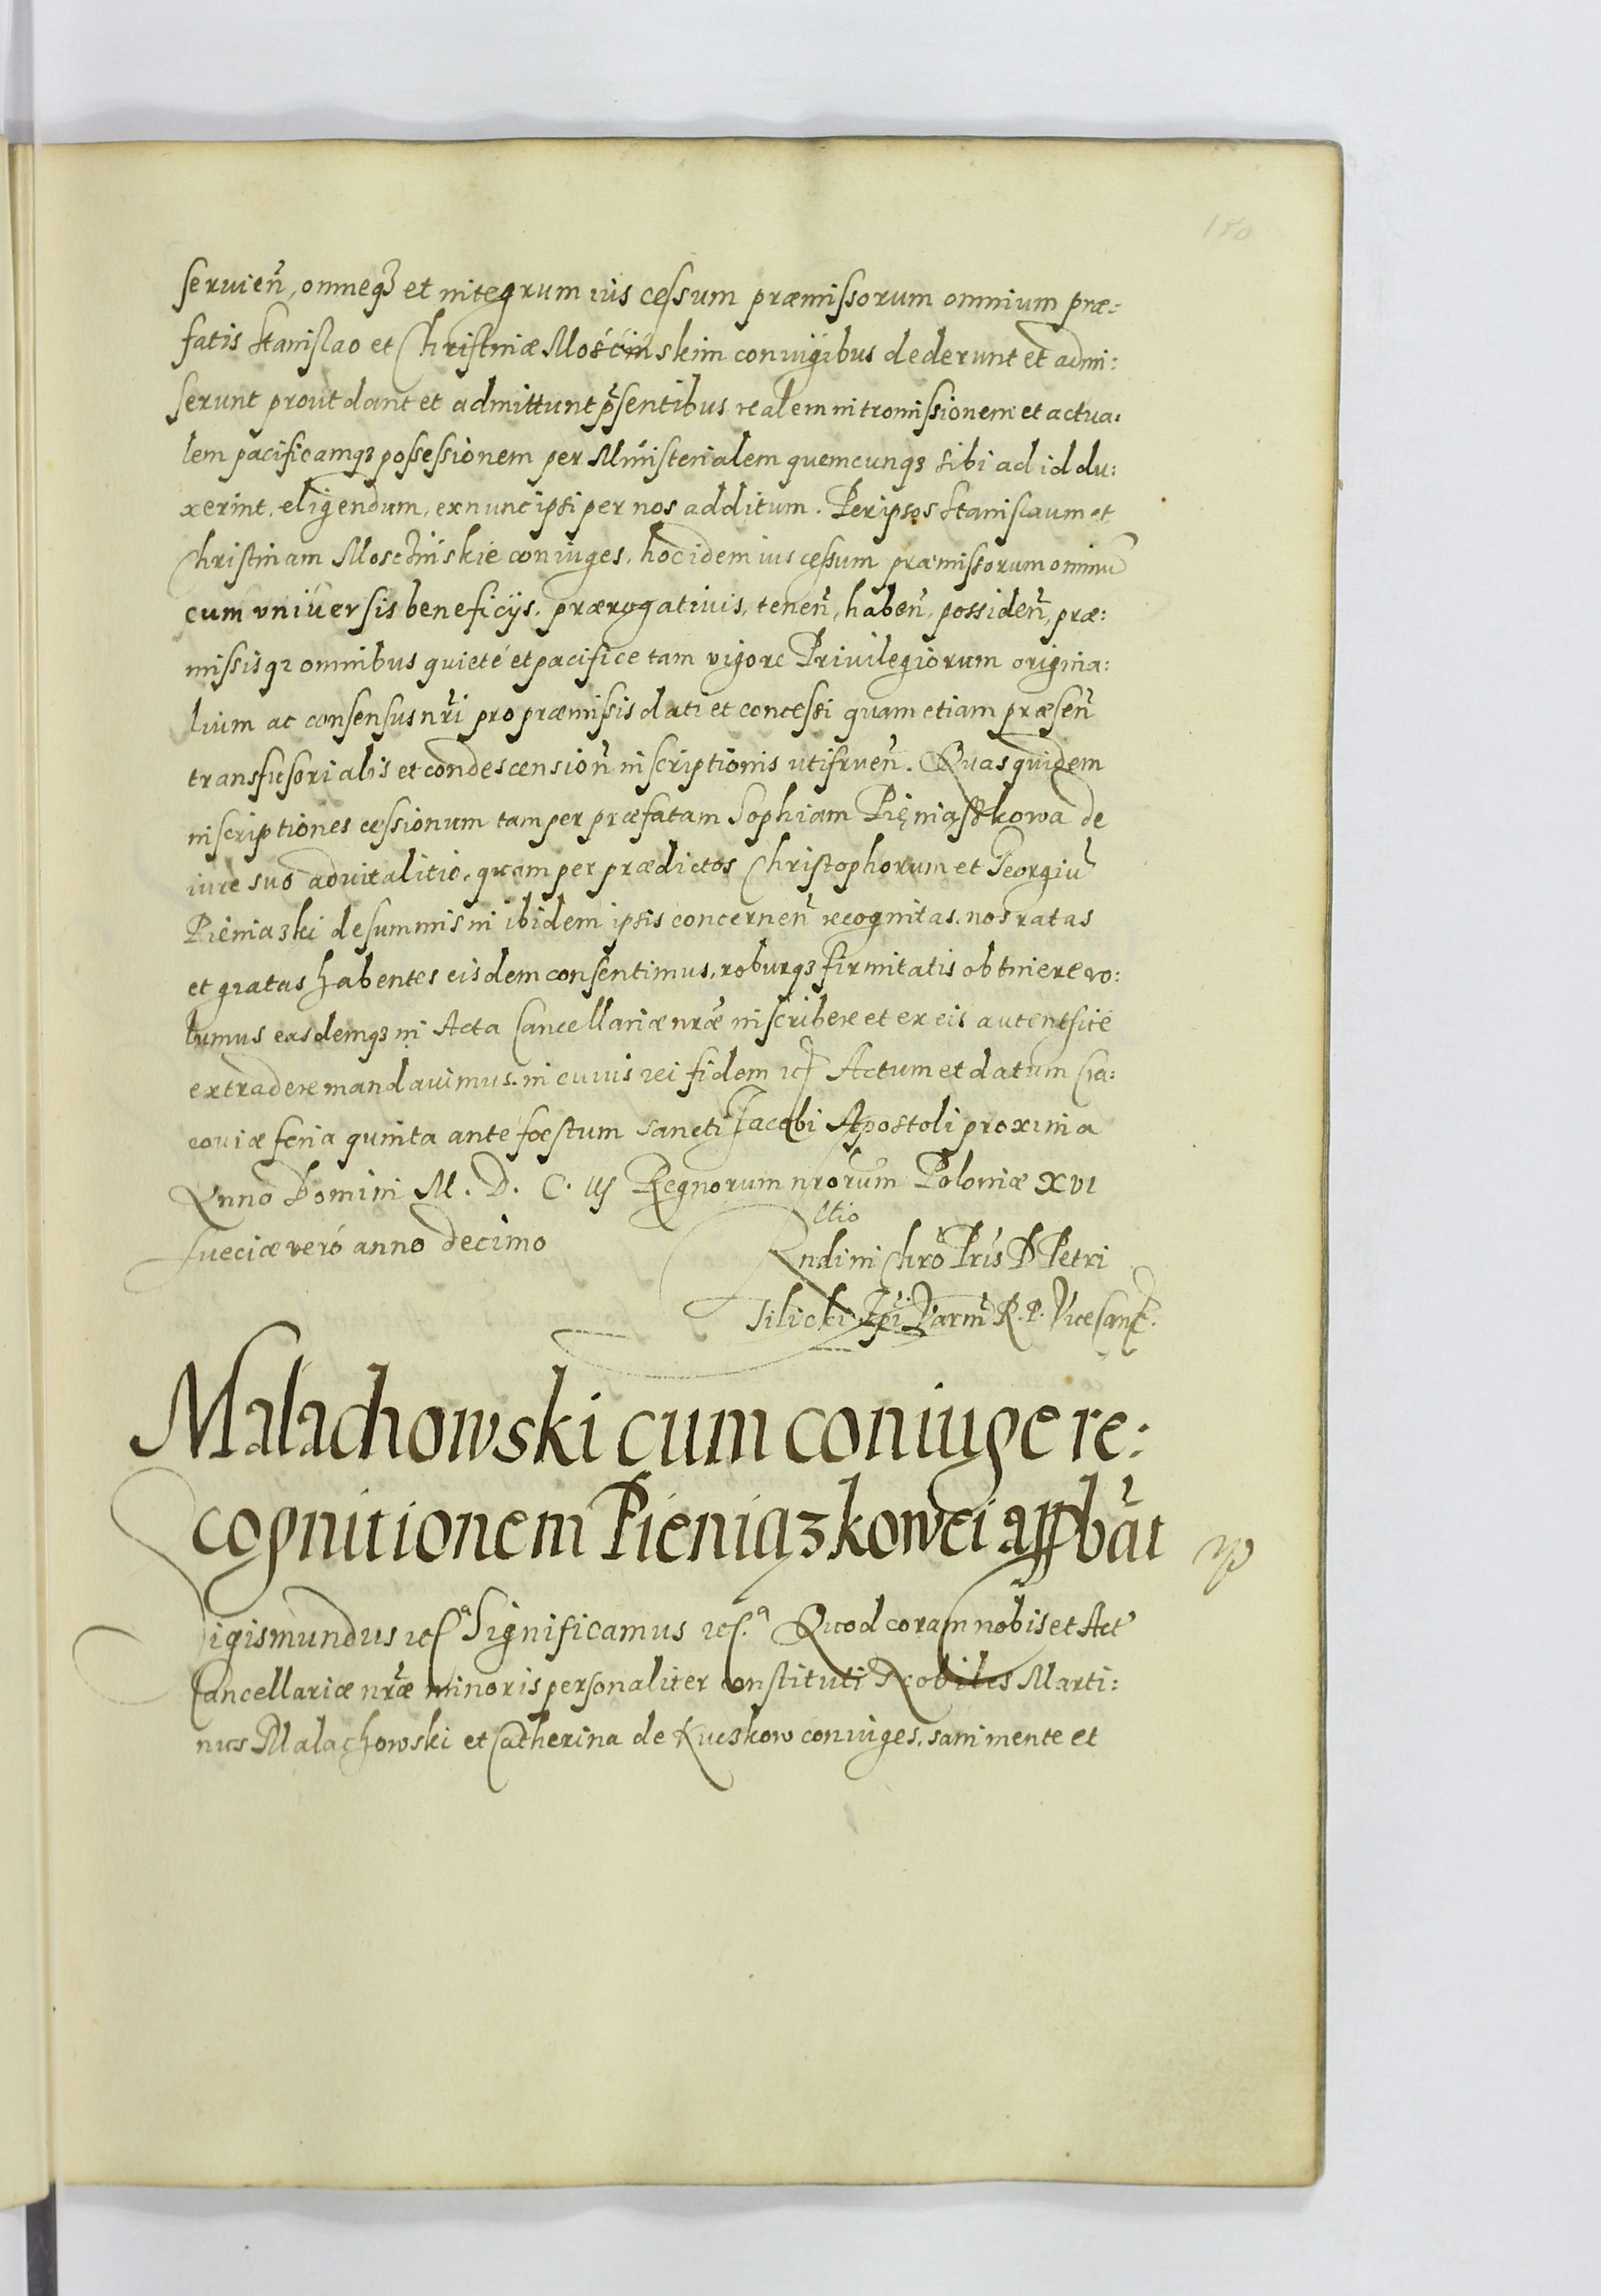 150
seruien̄, omneqʒ et integrum ius cessum præmissorum omnium præ:
fatis Stanislao et Christinæ Mościnskim coniugibus dederunt et admi:
serunt prout dant et admittunt pr̄sentibus realem intromissionem et actua:
lem pacificamqʒ possessionem per Ministerialem quemcunqʒ sibi ad id du:
xerint, eligendum, ex nunc ipsi per nos additum. Per ipsos Stanislaum et
Christinam Moscinskie coniuges, hoc idem ius cessum præmissorum omniū
cum vniuersis beneficijs, prærogatiuis, tenen̄, haben̄, possiden̄, præ:
missisqʒ omnibus quieté et pacifice tam vigore Priuilegiorum origina:
lium ac consensus nr̄i pro præmissis dati et concessi quam etiam præsen̄
transfusorialis et condescension̄ inscriptionis utifruen̄. Quas quidem
inscriptiones cessionum tam per præfatam Sophiam Pięniąszkowa de
iure suo aduitalitio, quam per prædictos Christophorum et Georgiū
Pieniazki de summis in ibidem ipsis concernen̄ recognitas, nos ratas
et gratas habentes eisdem consentimus, roburqʒ firmitatis obtinere vo:
lumus easdemqʒ in Acta Cancellariæ nr̄æ inscribere et ex eis autentsicé
extradere mandauimus. in cuius rei fidem etc Actum et datum Cra:
couiæ feria quinta ante fœstum sancti Jacobi Apostoli proxima
Anno Domini M. D. C. iij Regnorum nr̄orum Poloniæ XVI
Sueciæ veró anno decimo
ctio
Rndi in Chrō Pris D Petri
Tilicki Epi Varm̄ R. P. ViceCanc.
Malachowski cum coniuge re:
cognitionem Pieniązkowei appbāt
Sigismundus etc Significamus etc. Quod coram nobis et Act
Cancellariæ nr̄æ minoris personaliter constituti Nobiles Marti:
nus Malachowski et Catherina de Kuczkow coniuges, sani mente et